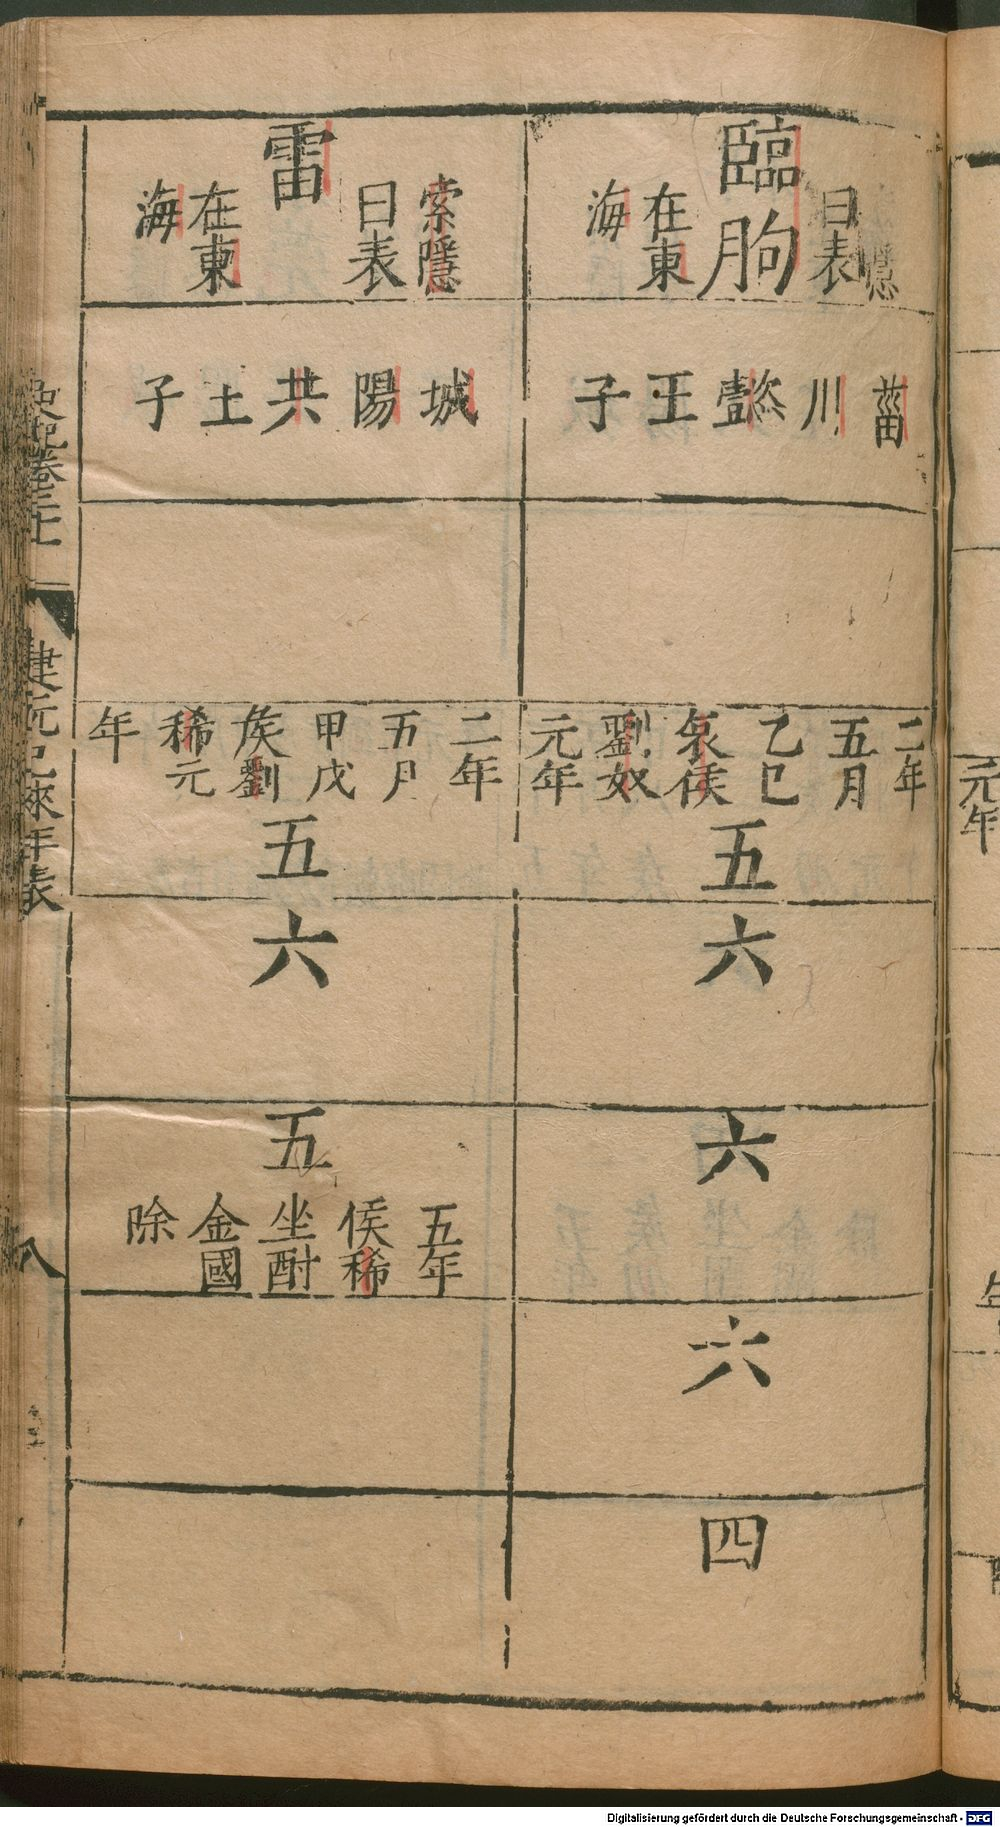 隱
曰表
臨朐
在東
海
菑川懿王子
二年
五月
乙巳
哀侯
劉奴
元年
五
六
六
六
四
索隱
曰表
雷
在東
海
城陽共土子
二年
五月
甲戊
侯劉
稀元
年
五
六
五
五年
侯稀
坐酎
金國
除
建元已來年表
八
元年
Digitalisierung gefördert durch die Deutsche Forschungsgemeinschaft - DFG